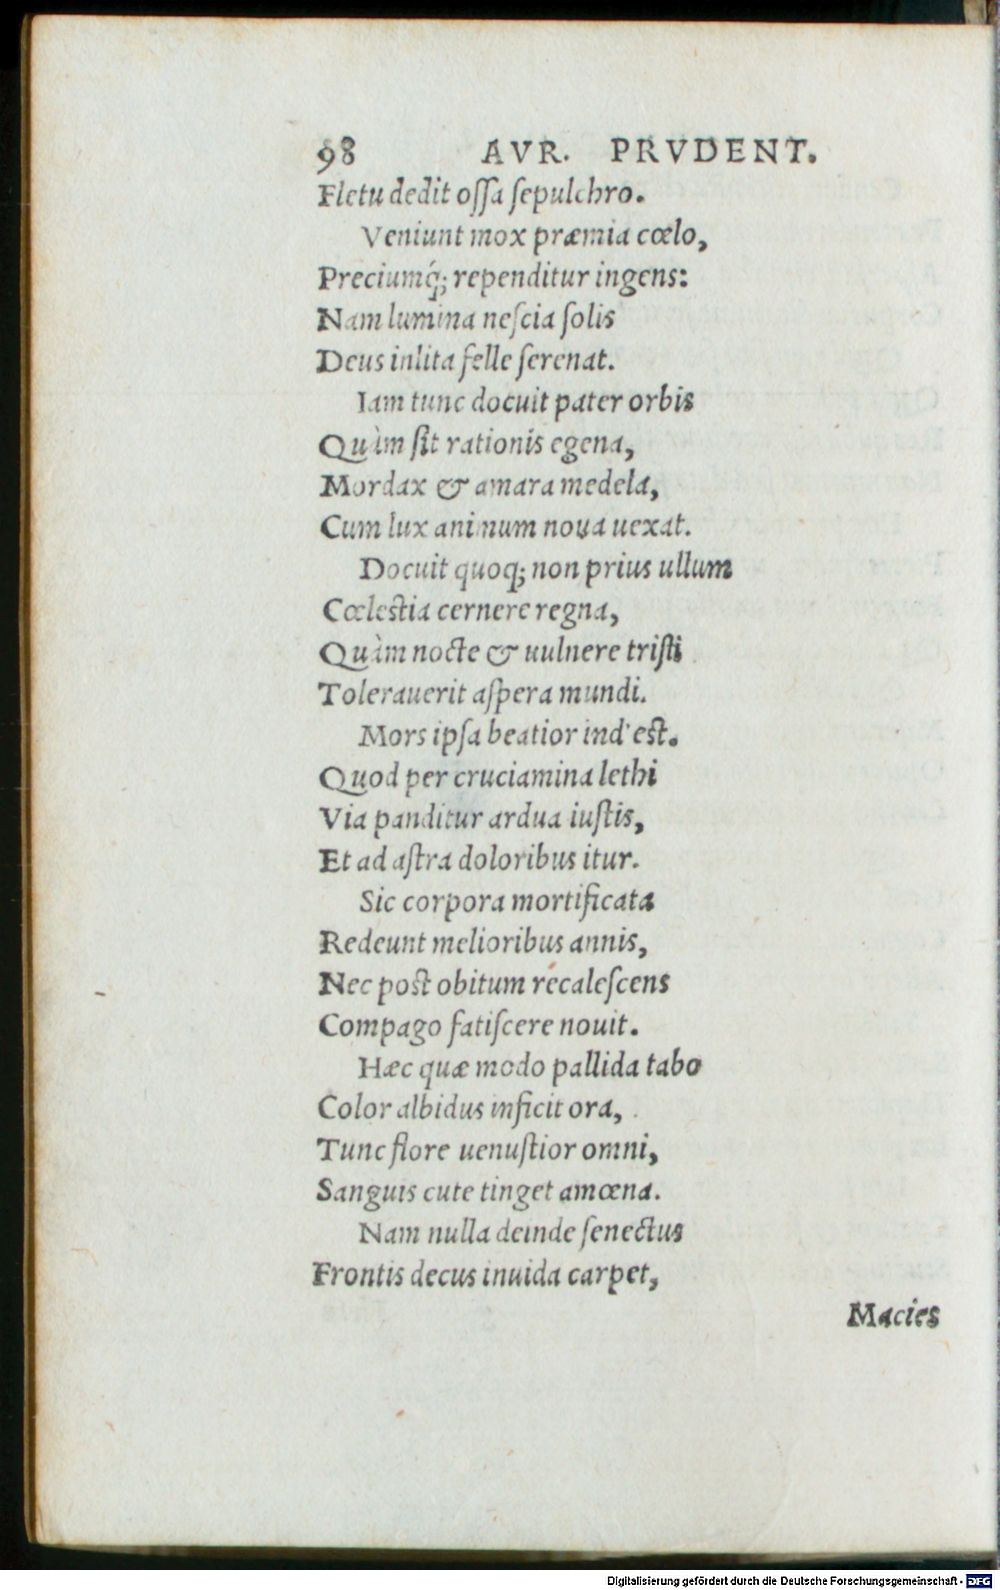 98 AVR. PRVDENT.
Fletu dedit ossa sepulchro.
Veniunt mox præmia cœlo,
Preciumq́; rependitur ingens:
Nam lumina nescia solis
Deus inlita felle serenat.
Iam tunc docuit pater orbis
Quàm sit rationis egena,
Mordax & amara medela,
Cum lux animum noua uexat.
Docuit quoq; non prius ullum
Cœlestia cernere regna,
Quàm nocte & uulnere tristi
Tolerauerit aspera mundi.
Mors ipsa beatior ind' est.
Quod per cruciamina lethi
Via panditur ardua iustis,
Et ad astra doloribus itur.
Sic corpora mortificata
Redeunt melioribus annis,
Nec post obitum recalescens
Compago fatiscere nouit.
Hæc quæ modo pallida tabo
Color albidus inficit ora,
Tunc flore uenustior omni,
Sanguis cute tinget amœna.
Nam nulla deinde senectus
Frontis decus inuida carpet,
Macies
Digitalisierung gefördert durch die Deutsche Forschungsgemeinschaft - DFG